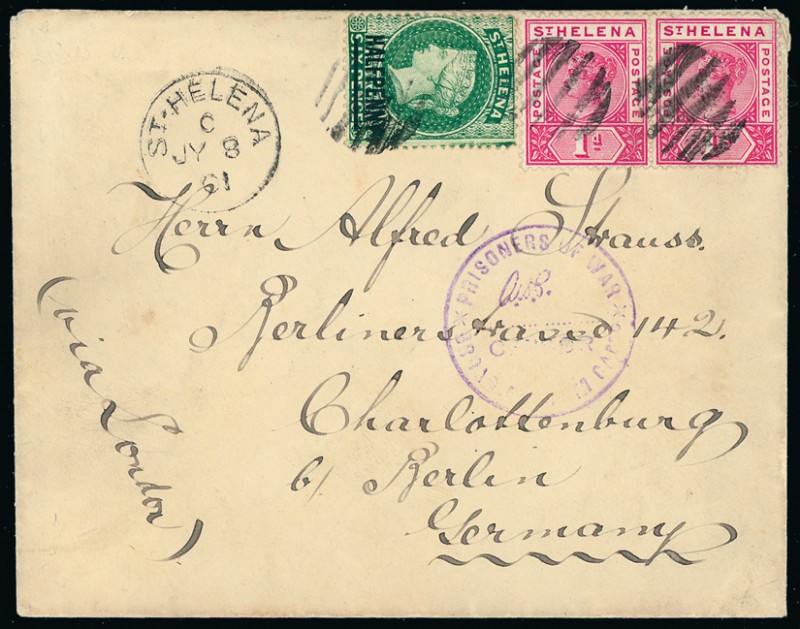 HALFPENNY
ST HELENA
ST HELENA
POSTAGE
POSTAGE
1D
ST HELENA
POSTAGE
POSTAGE
ST. HELENA
C
JY 8
01
Herrn Alfred Strauss.
PRISONERS OF WAR
Berlinerstrasse 142.
Charlottenburg
b/ Berlin
Germany
(via London)